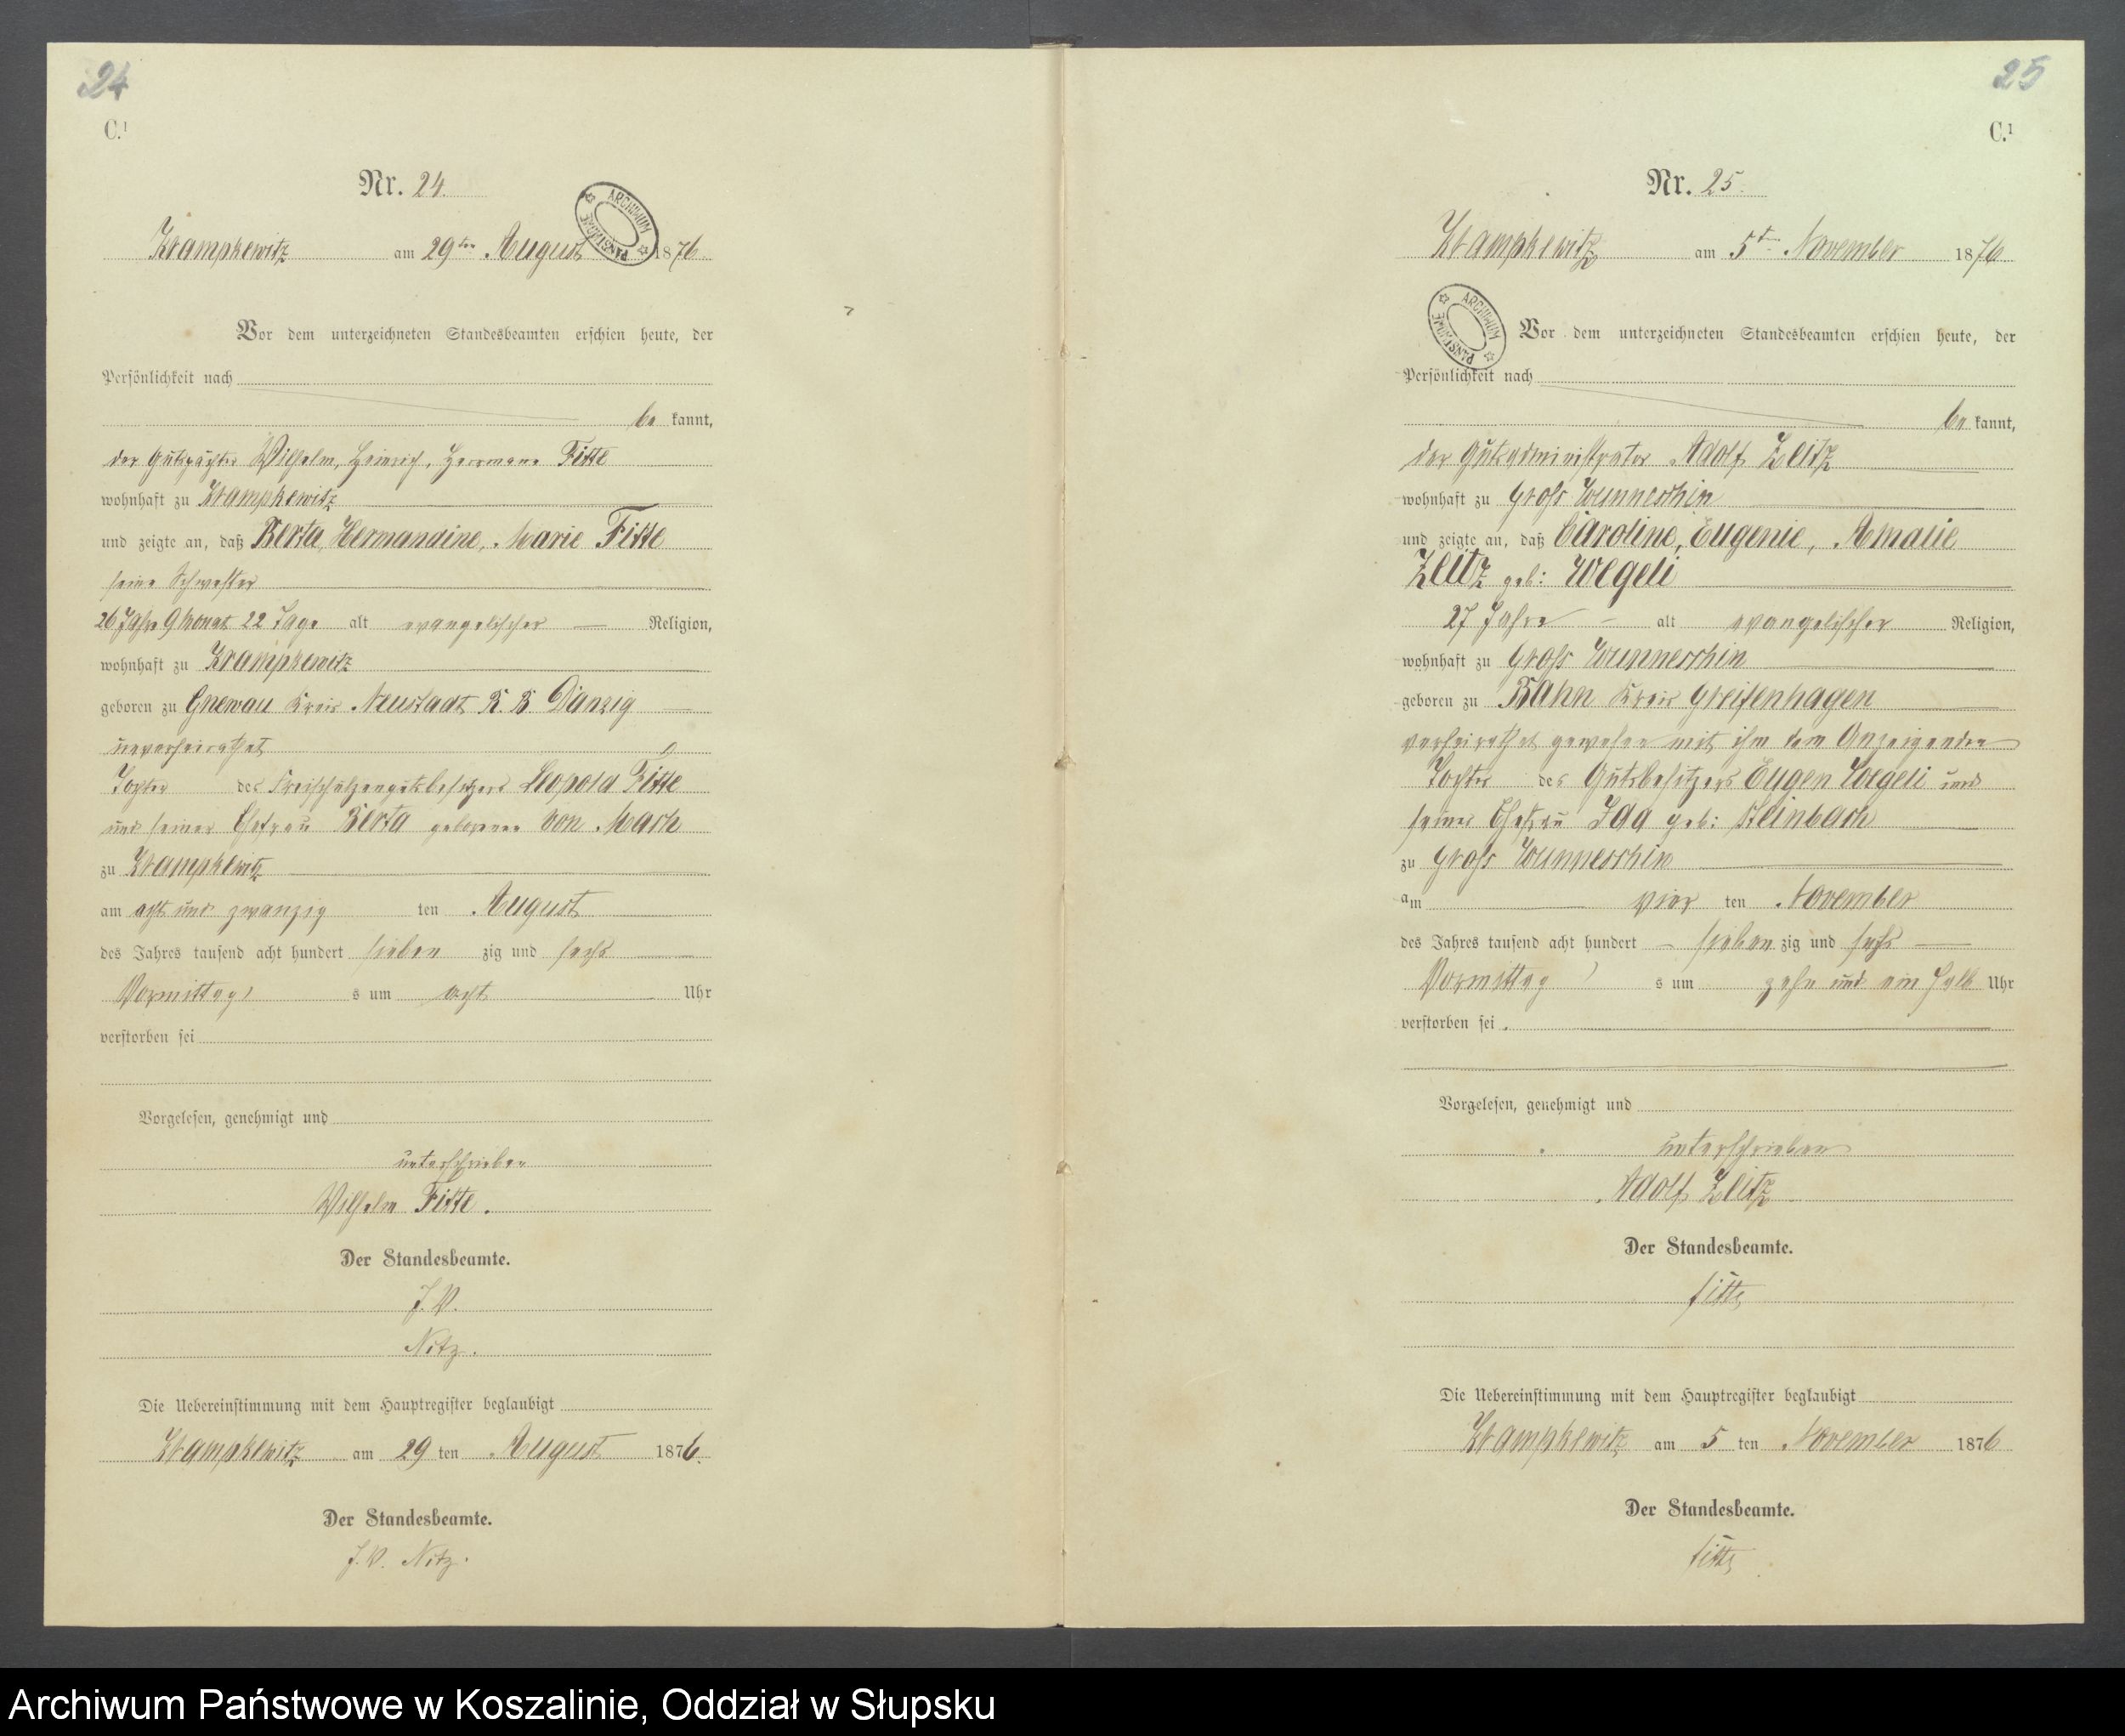 24
C.¹
Nr. 24.
ARCHIWUM PAŃSTWOWE
Krampkewitz am 29ten August 1876.
Vor dem unterzeichneten Standesbeamten erschien heute, der
Persönlichkeit nach
be kannt,
der Gutspächter Wilhelm, Heinrich, Herrmann Fitte
wohnhaft zu Krampkewitz
und zeigte an, daß Berta, Hermandine, Marie Fitte
seine Schwester
26 Jahre 9 Monat 22 Tage alt evangelischer Religion,
wohnhaft zu Krampkewitz
geboren zu Gnewau Kreis Neustadt R. B. Danzig
unverheirathet
Tochter des Freischulzengutsbesitzers Leopold Fitte
und seiner Ehefrau Berta geborenen von Mach
zu Krampkewitz
am acht und zwanzig ten August
des Jahres tausend acht hundert sieben zig und sechs
Vormittag s um acht Uhr
verstorben sei
Vorgelesen, genehmigt und
unterschrieben
Wilhelm Fitte.
Der Standesbeamte.
J. V.
Nitz.
Die Uebereinstimmung mit dem Hauptregister beglaubigt
Krampkewitz am 29 ten August 1876.
Der Standesbeamte.
J. V. Nitz.
25
C.¹
Nr. 25.
Krampkewitz am 5ten November 1876
ARCHIWUM PAŃSTWOWE
Vor dem unterzeichneten Standesbeamten erschien heute, der
Persönlichkeit nach
be kannt,
der Gutsadministrator Adolf Zeitz
wohnhaft zu Gross Wunneschin
und zeigte an, daß Caroline, Eugenie, Amalie
Zeitz geb: Wegeli
27 Jahre alt evangelischer Religion,
wohnhaft zu Gross Wunneschin
geboren zu Bahn Kreis Greifenhagen
verheirathet gewesen mit ihm dem Anzeigenden
Tochter des Gutsbesitzers Eugen Wegeli und
seiner Ehefrau Ida geb: Steinbach
zu Gross Wunneschin
am vier ten November
des Jahres tausend acht hundert sieben zig und sechs
Vormittag s um zehn und ein halb Uhr
verstorben sei.
Vorgelesen, genehmigt und
unterschrieben
Adolf Zeitz.
Der Standesbeamte.
Fitte
Die Uebereinstimmung mit dem Hauptregister beglaubigt
Krampkewitz am 5 ten November 1876
Der Standesbeamte.
Fitte
Archiwum Państwowe w Koszalinie, Oddział w Słupsku